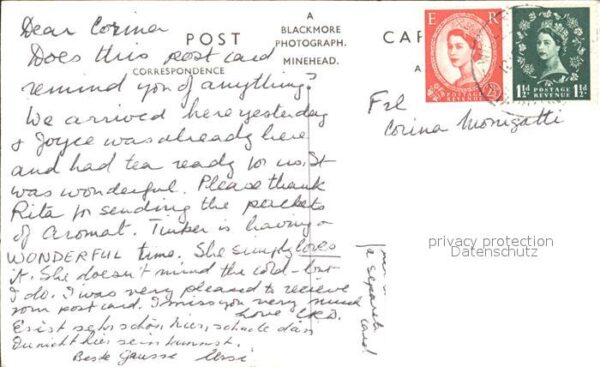 Dear Corina
Does this post card
remind you of anything?
We arrived here yesterday
& Joyce was already here
and had tea ready for us. It
was wonderful. Please thank
Rita for sending the packets
of Aromat. Tinker is having a
WONDERFUL time. She simply loves
it. She doesn't mind the cold - but
I do. I was very pleased to recieve
your post card. I miss you very much
Love
Es ist sehr schön hier, schade dass
Du nicht hier sein kannst.
Beste Grüsse Ursi
POST
CORRESPONDENCE
A
BLACKMORE
PHOTOGRAPH.
MINEHEAD.
CAR
A
E R
POSTAGE
REVENUE
2½D
1½D POSTAGE 1½D
REVENUE
Frl
Corina Monigatti
privacy protection
Datenschutz
a separate
card